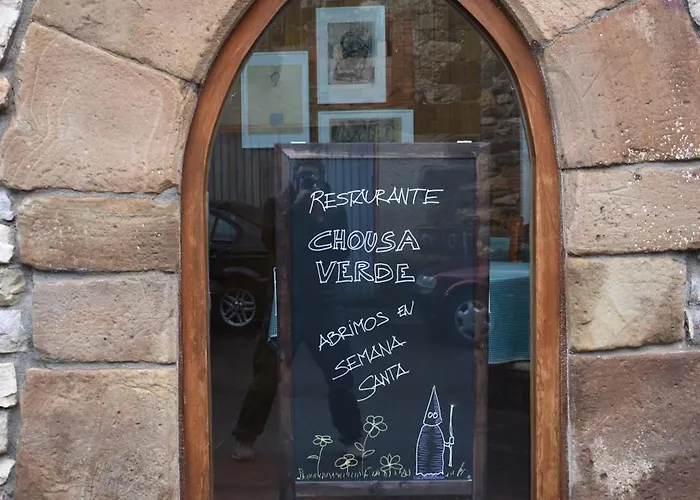 RESTAURANTE
CHOUSA
VERDE
ABRIMOS EN
SEMANA
SANTA